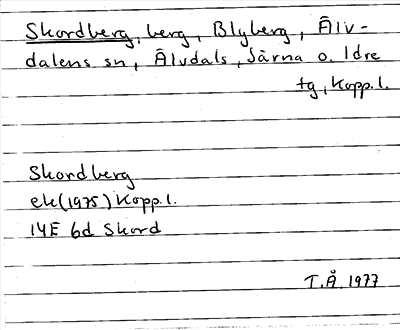 Skordberg, berg, Blyberg, Älv-
dalens sn, Älvdals, Särna o. Idre
tg, Kopp.l.
Skordberg
ek(1975) Kopp.l.
14E 6d Skord
T.Å. 1977